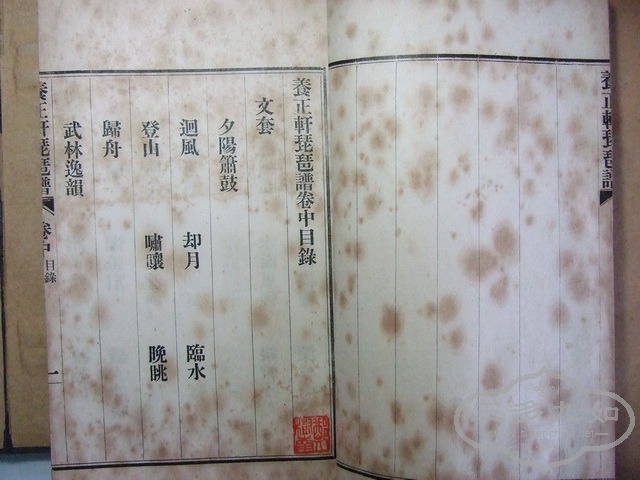 養正軒琵琶譜
養正軒琵琶譜卷中目錄
文套
夕陽簫鼓
迴風 却月 臨水
登山 嘯讓 晚眺
歸舟
武林逸韻
養正軒琵琶譜 卷中 目錄 一